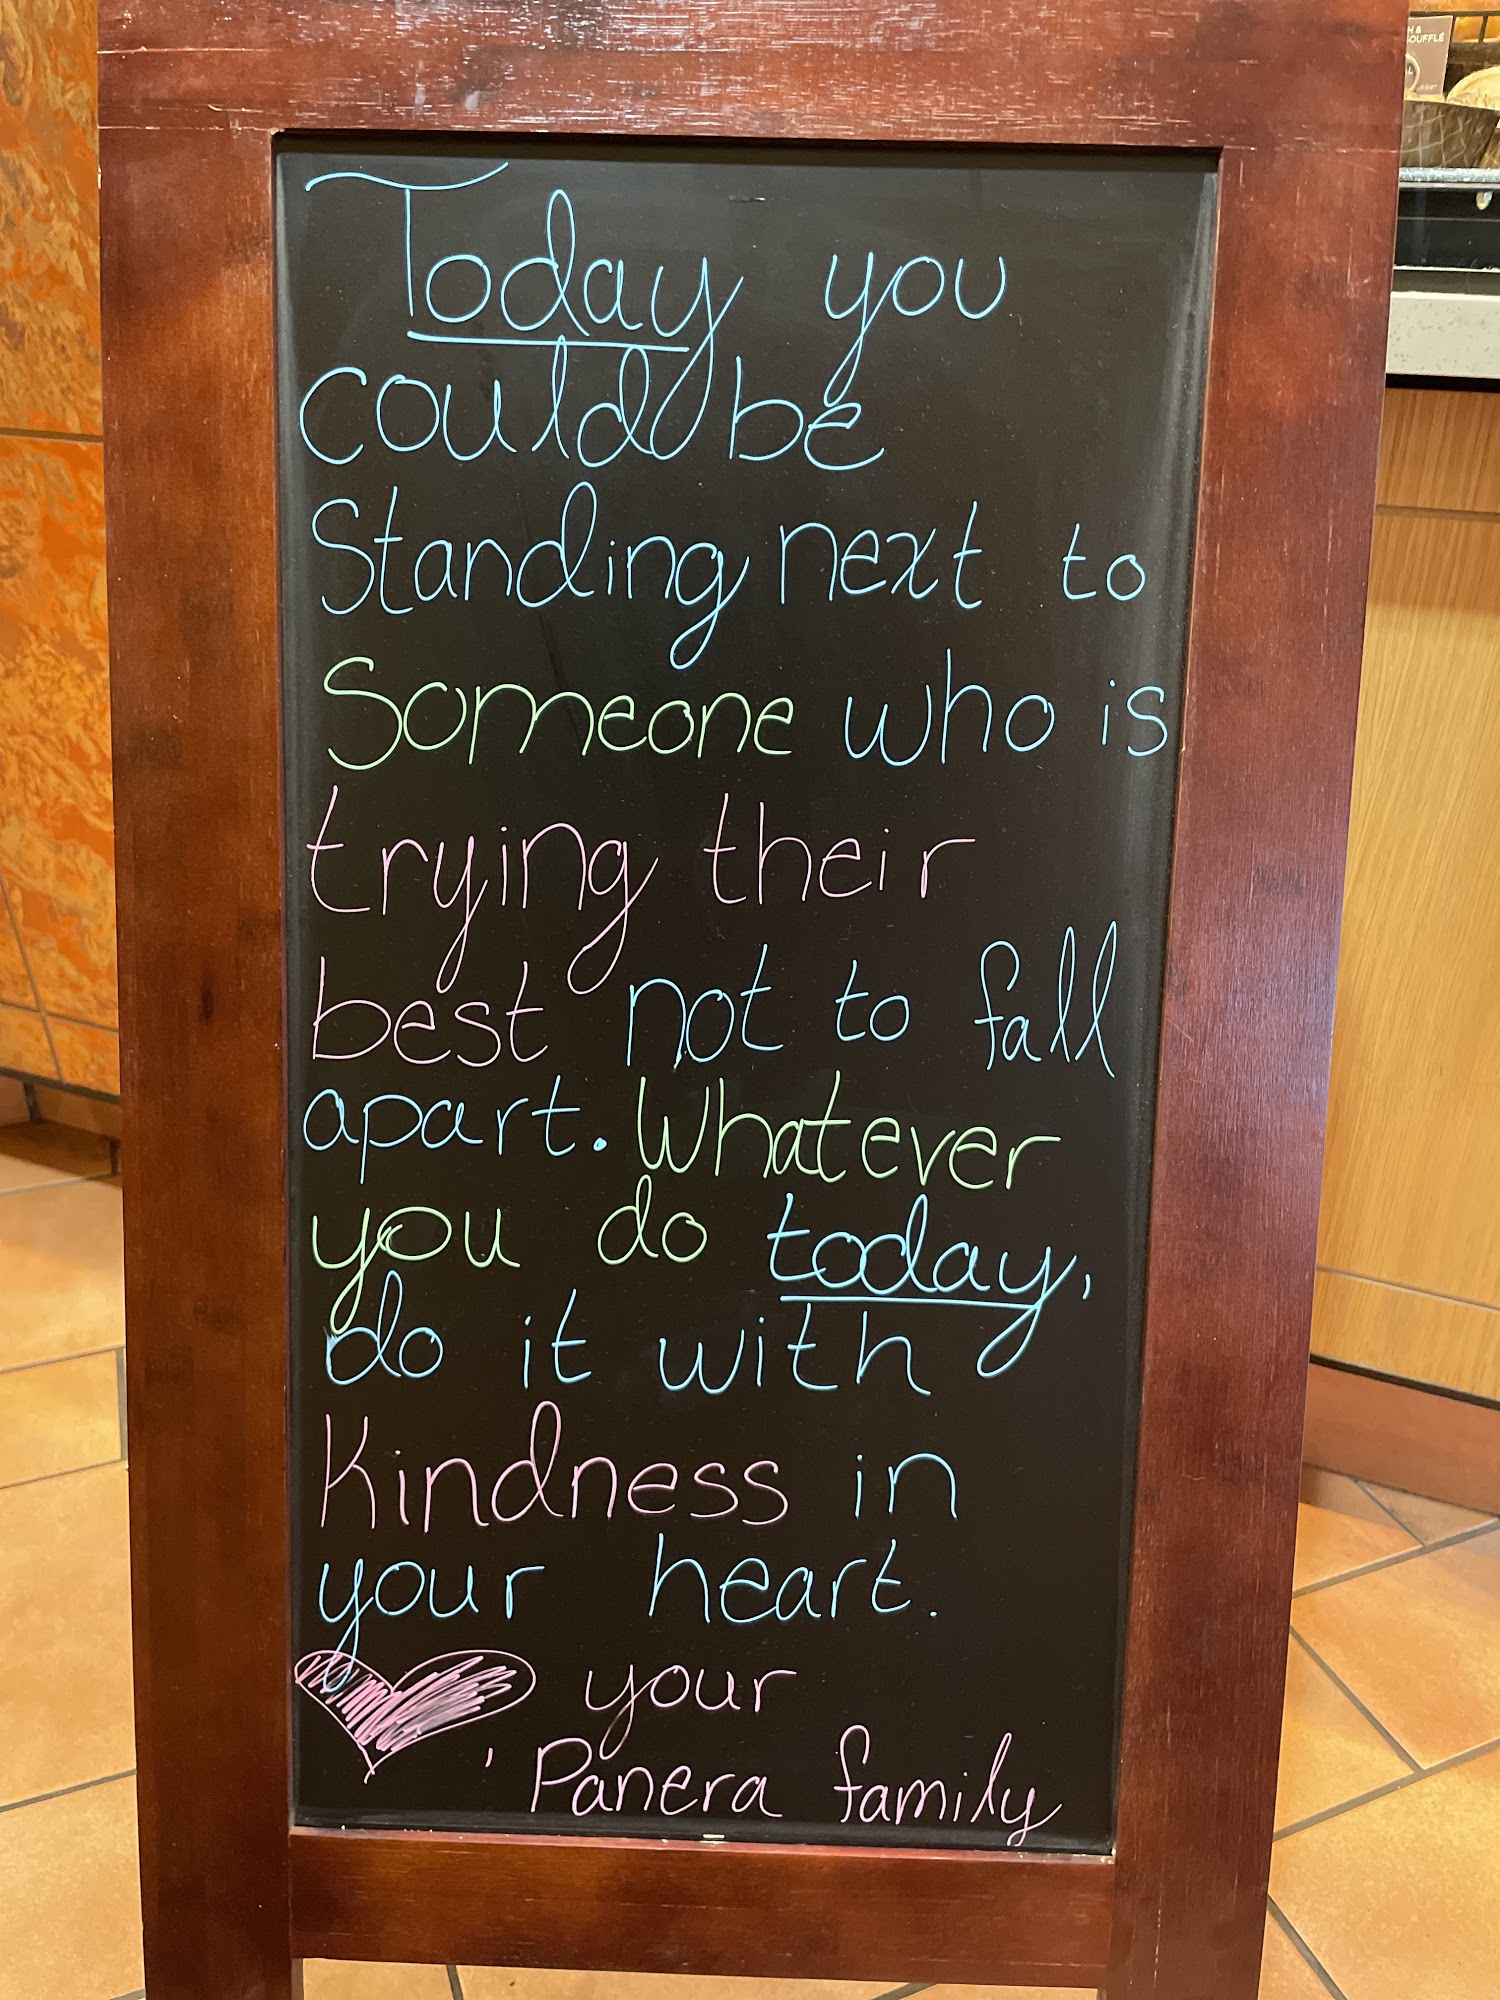 Today you
could be
Standing next to
Someone who is
trying their
best not to fall
apart. Whatever
you do today,
do it with
Kindness in
your heart.
your
Panera family
H &
SOUFFLÉ